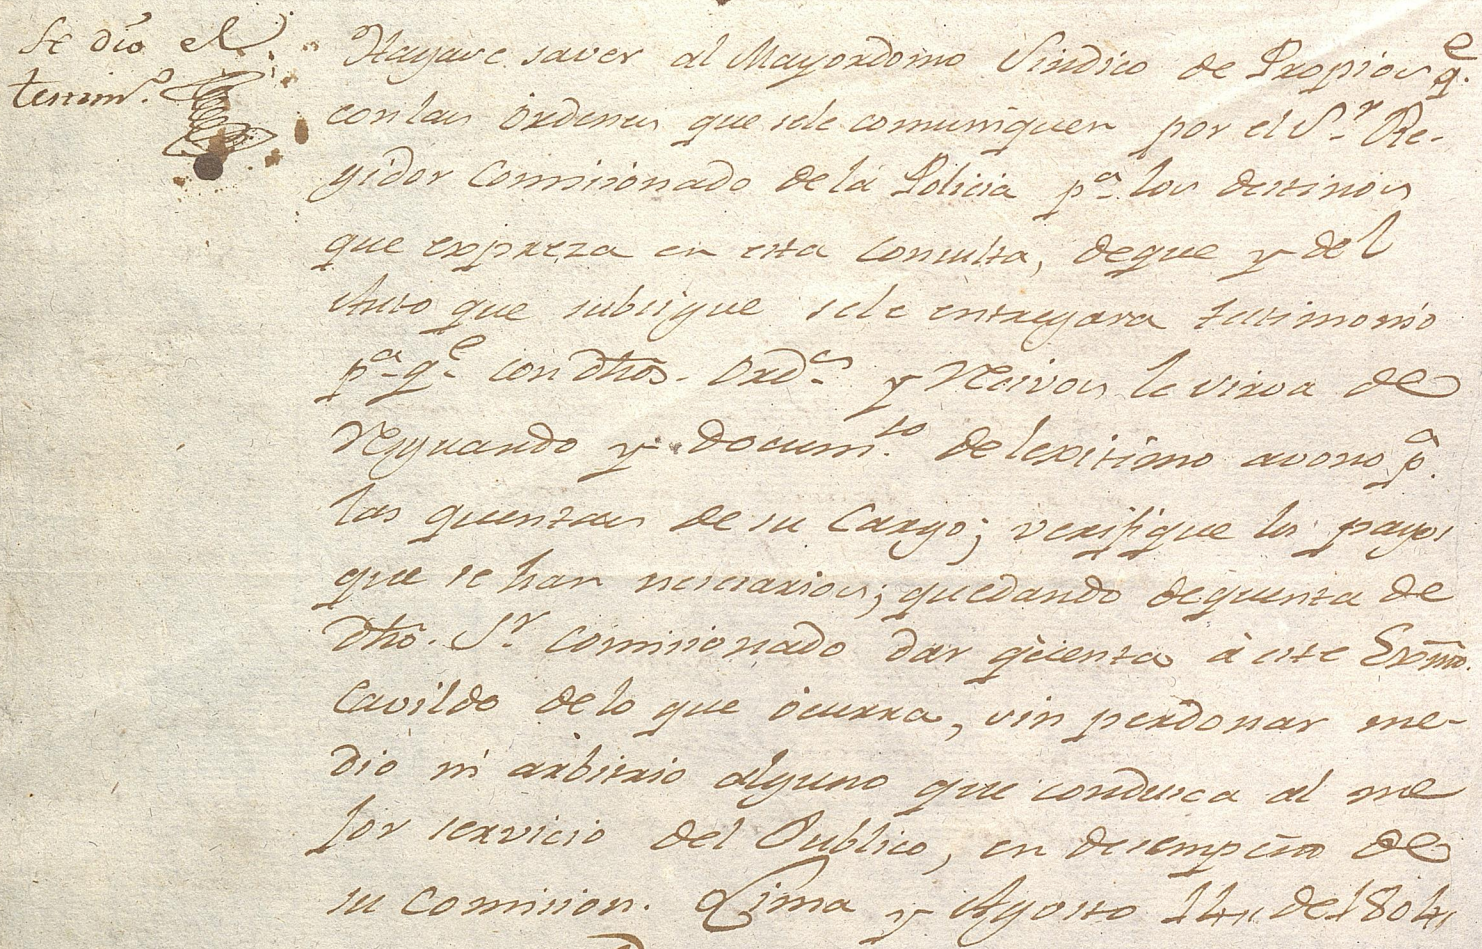 Se dio el
testim.º
Hagase saver al Mayordomo Sindico de Propios q.e
con las ordenes que sele comuniquen por el S.r Re-
gidor Comisionado de la Policia p.a los destinos
que expreza en esta consulta, de que y del
Auto que subsigue sele entregara testimonio
p.a q.e con dhas. ord.s y Recivos le sirva de
Resguardo y docum.to de lexitimo avono p.a
las quentas de su Cargo; verifique los pagos
que se han nesesarios; quedando de quenta de
dho. S.r Comisionado dar quenta à este Exmo.
Cavildo de lo que ocurra, sin perdonar me-
dio ni arbitrio alguno que condusca al me
jor servicio del Publico, en desempeño de
su Comision. Lima y Agosto 14,, de 1804,,